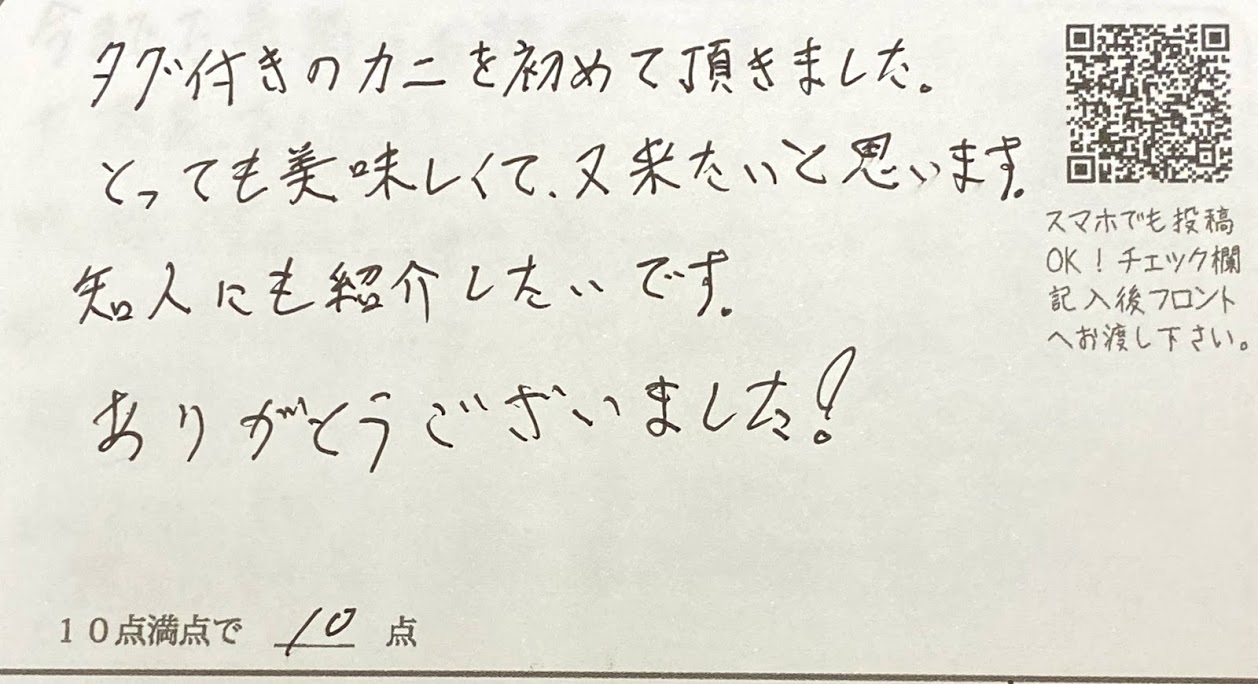 タグ付きのカニを初めて頂きました。
とっても美味しくて、又来たいと思います。
知人にも紹介したいです。
ありがとうございました!
スマホでも投稿
OK!チェック欄
記入後フロント
へお渡し下さい。
10点満点で 10 点